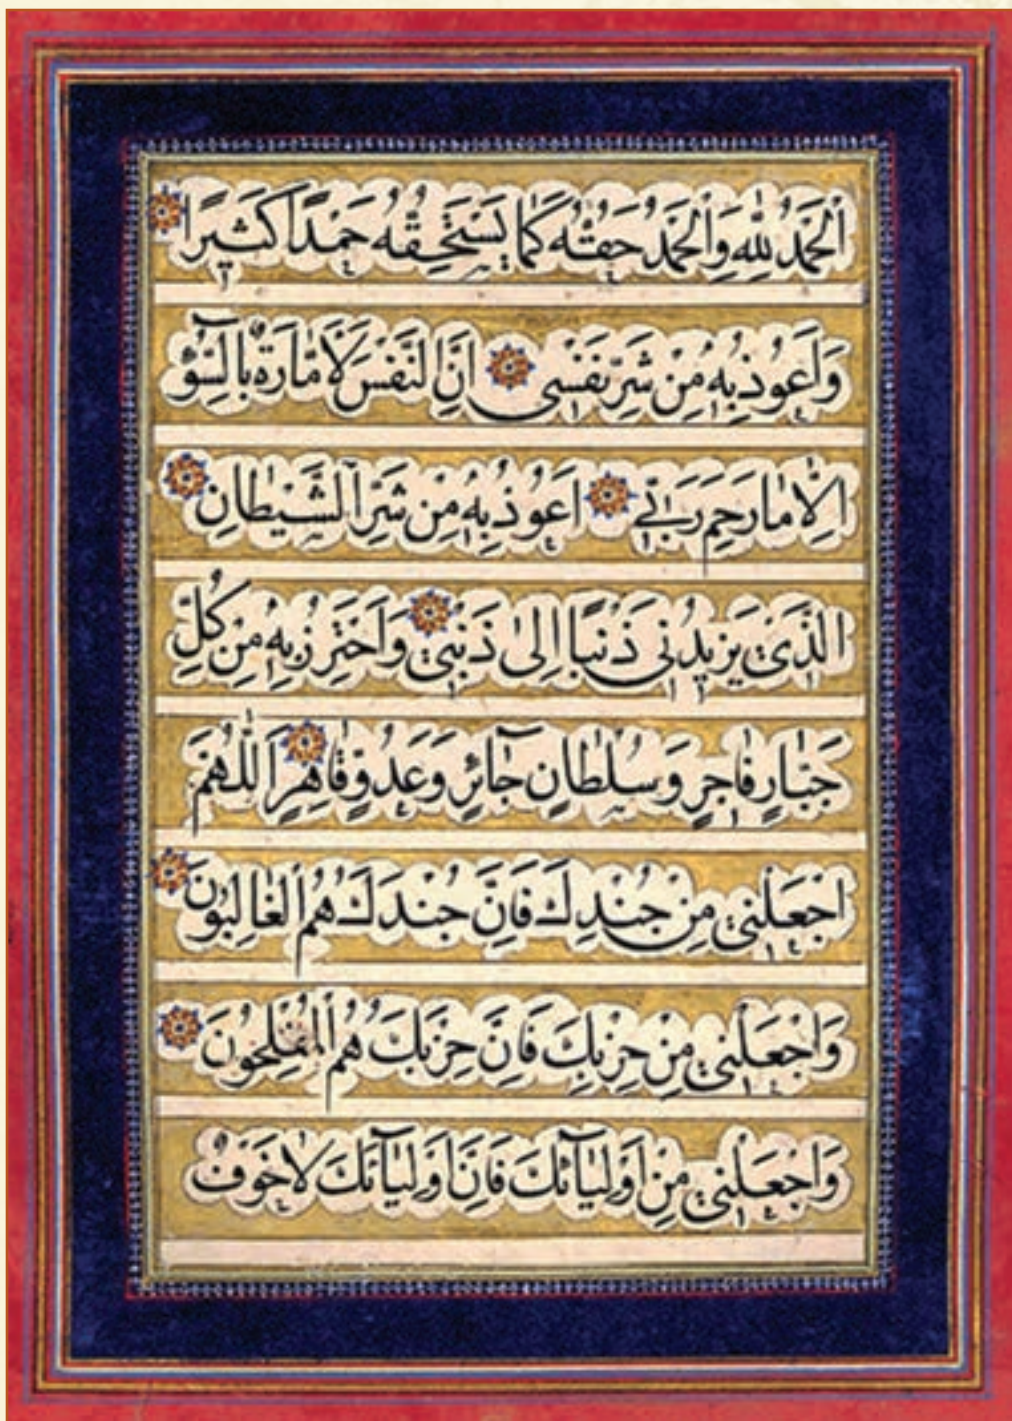 اَلْحَمْدُ لِلّٰهِ وَالْحَمْدُ حَقُّهُ كَمَا يَسْتَحِقُّهُ حَمْدًا كَثِيرًا
وَاَعُوذُ بِهِ مِنْ شَرِّ نَفْسِى اِنَّ النَّفْسَ لَاَمَّارَةٌ بِالسُّوٓءِ
اِلَّا مَا رَحِمَ رَبِّى اَعُوذُ بِهِ مِنْ شَرِّ الشَّيْطَانِ
الَّذِى يَزِيدُنِى ذَنْبًا اِلٰى ذَنْبِى وَاَحْتَرِزُ بِهِ مِنْ كُلِّ
جَبَّارٍ فَاجِرٍ وَسُلْطَانٍ جَآئِرٍ وَعَدُوٍّ قَاهِرٍ اَللّٰهُمَّ
اجْعَلْنِى مِنْ جُنْدِكَ فَاِنَّ جُنْدَكَ هُمُ الْغَالِبُونَ
وَاجْعَلْنِى مِنْ حِزْبِكَ فَاِنَّ حِزْبَكَ هُمُ الْمُفْلِحُونَ
وَاجْعَلْنِى مِنْ اَوْلِيَآئِكَ فَاِنَّ اَوْلِيَآئَكَ لَا خَوْفٌ